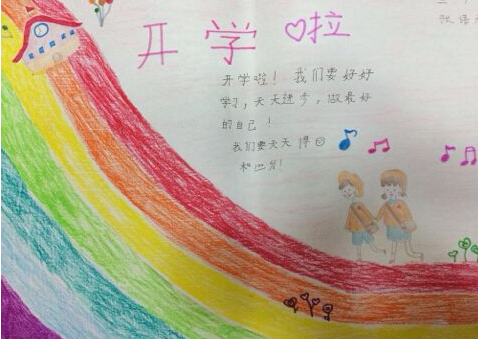 开学啦
三
张语
开学啦！我们要好好
学习，天天进步，做最好
的自己！
我们要天天得
和四分！